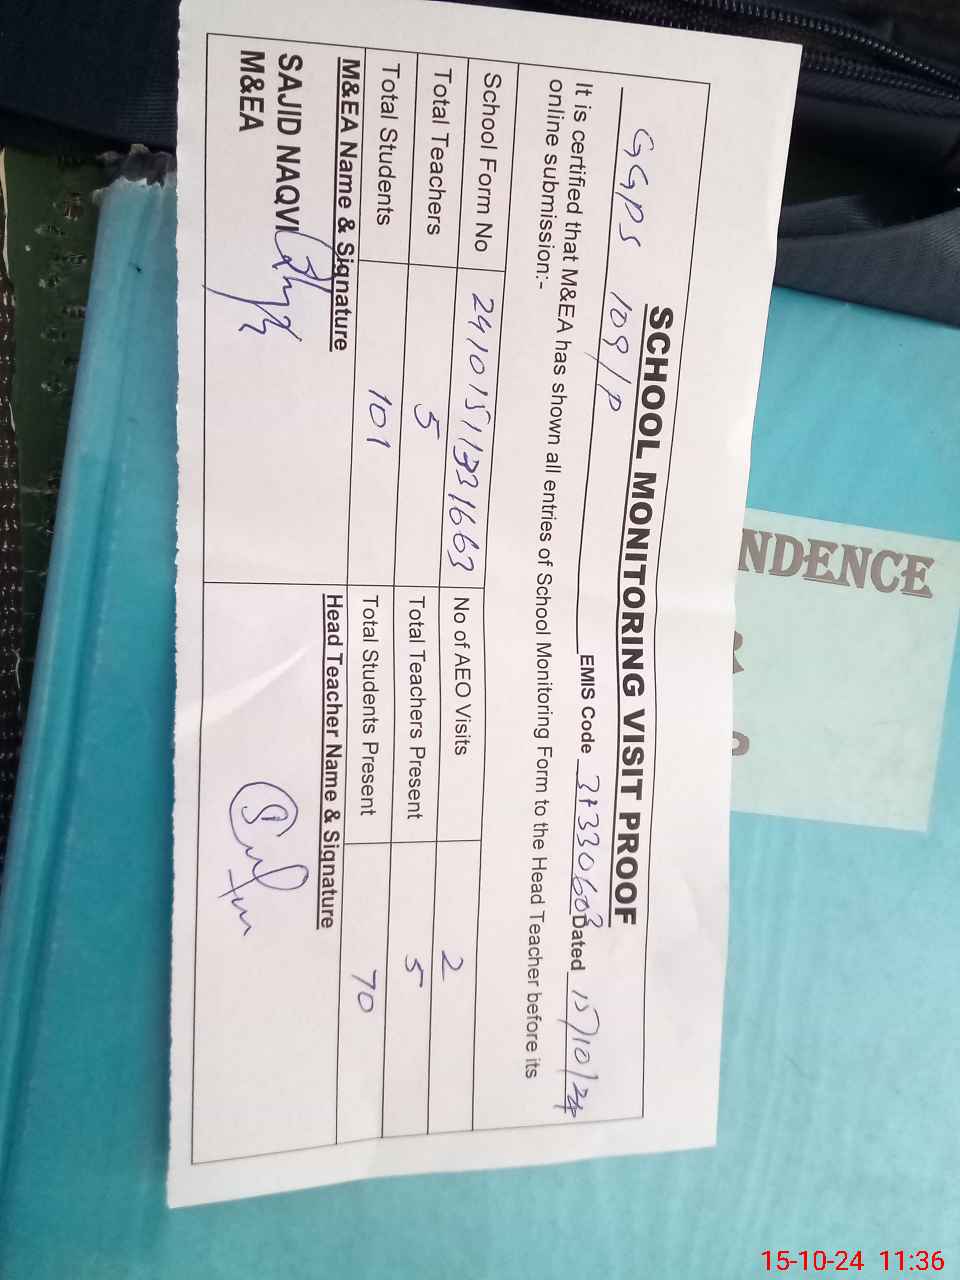 SCHOOL MONITORING VISIT PROOF
GGPS 109/P EMIS Code 31330603 Dated 15/10/24
It is certified that M&EA has shown all entries of School Monitoring Form to the Head Teacher before its
online submission:-
School Form No 24101511331663 No of AEO Visits 2
Total Teachers 5 Total Teachers Present 5
Total Students 101 Total Students Present 70
M&EA Name & Signature Head Teacher Name & Signature
SAJID NAQVI
M&EA
NDENCE
15-10-24 11:36